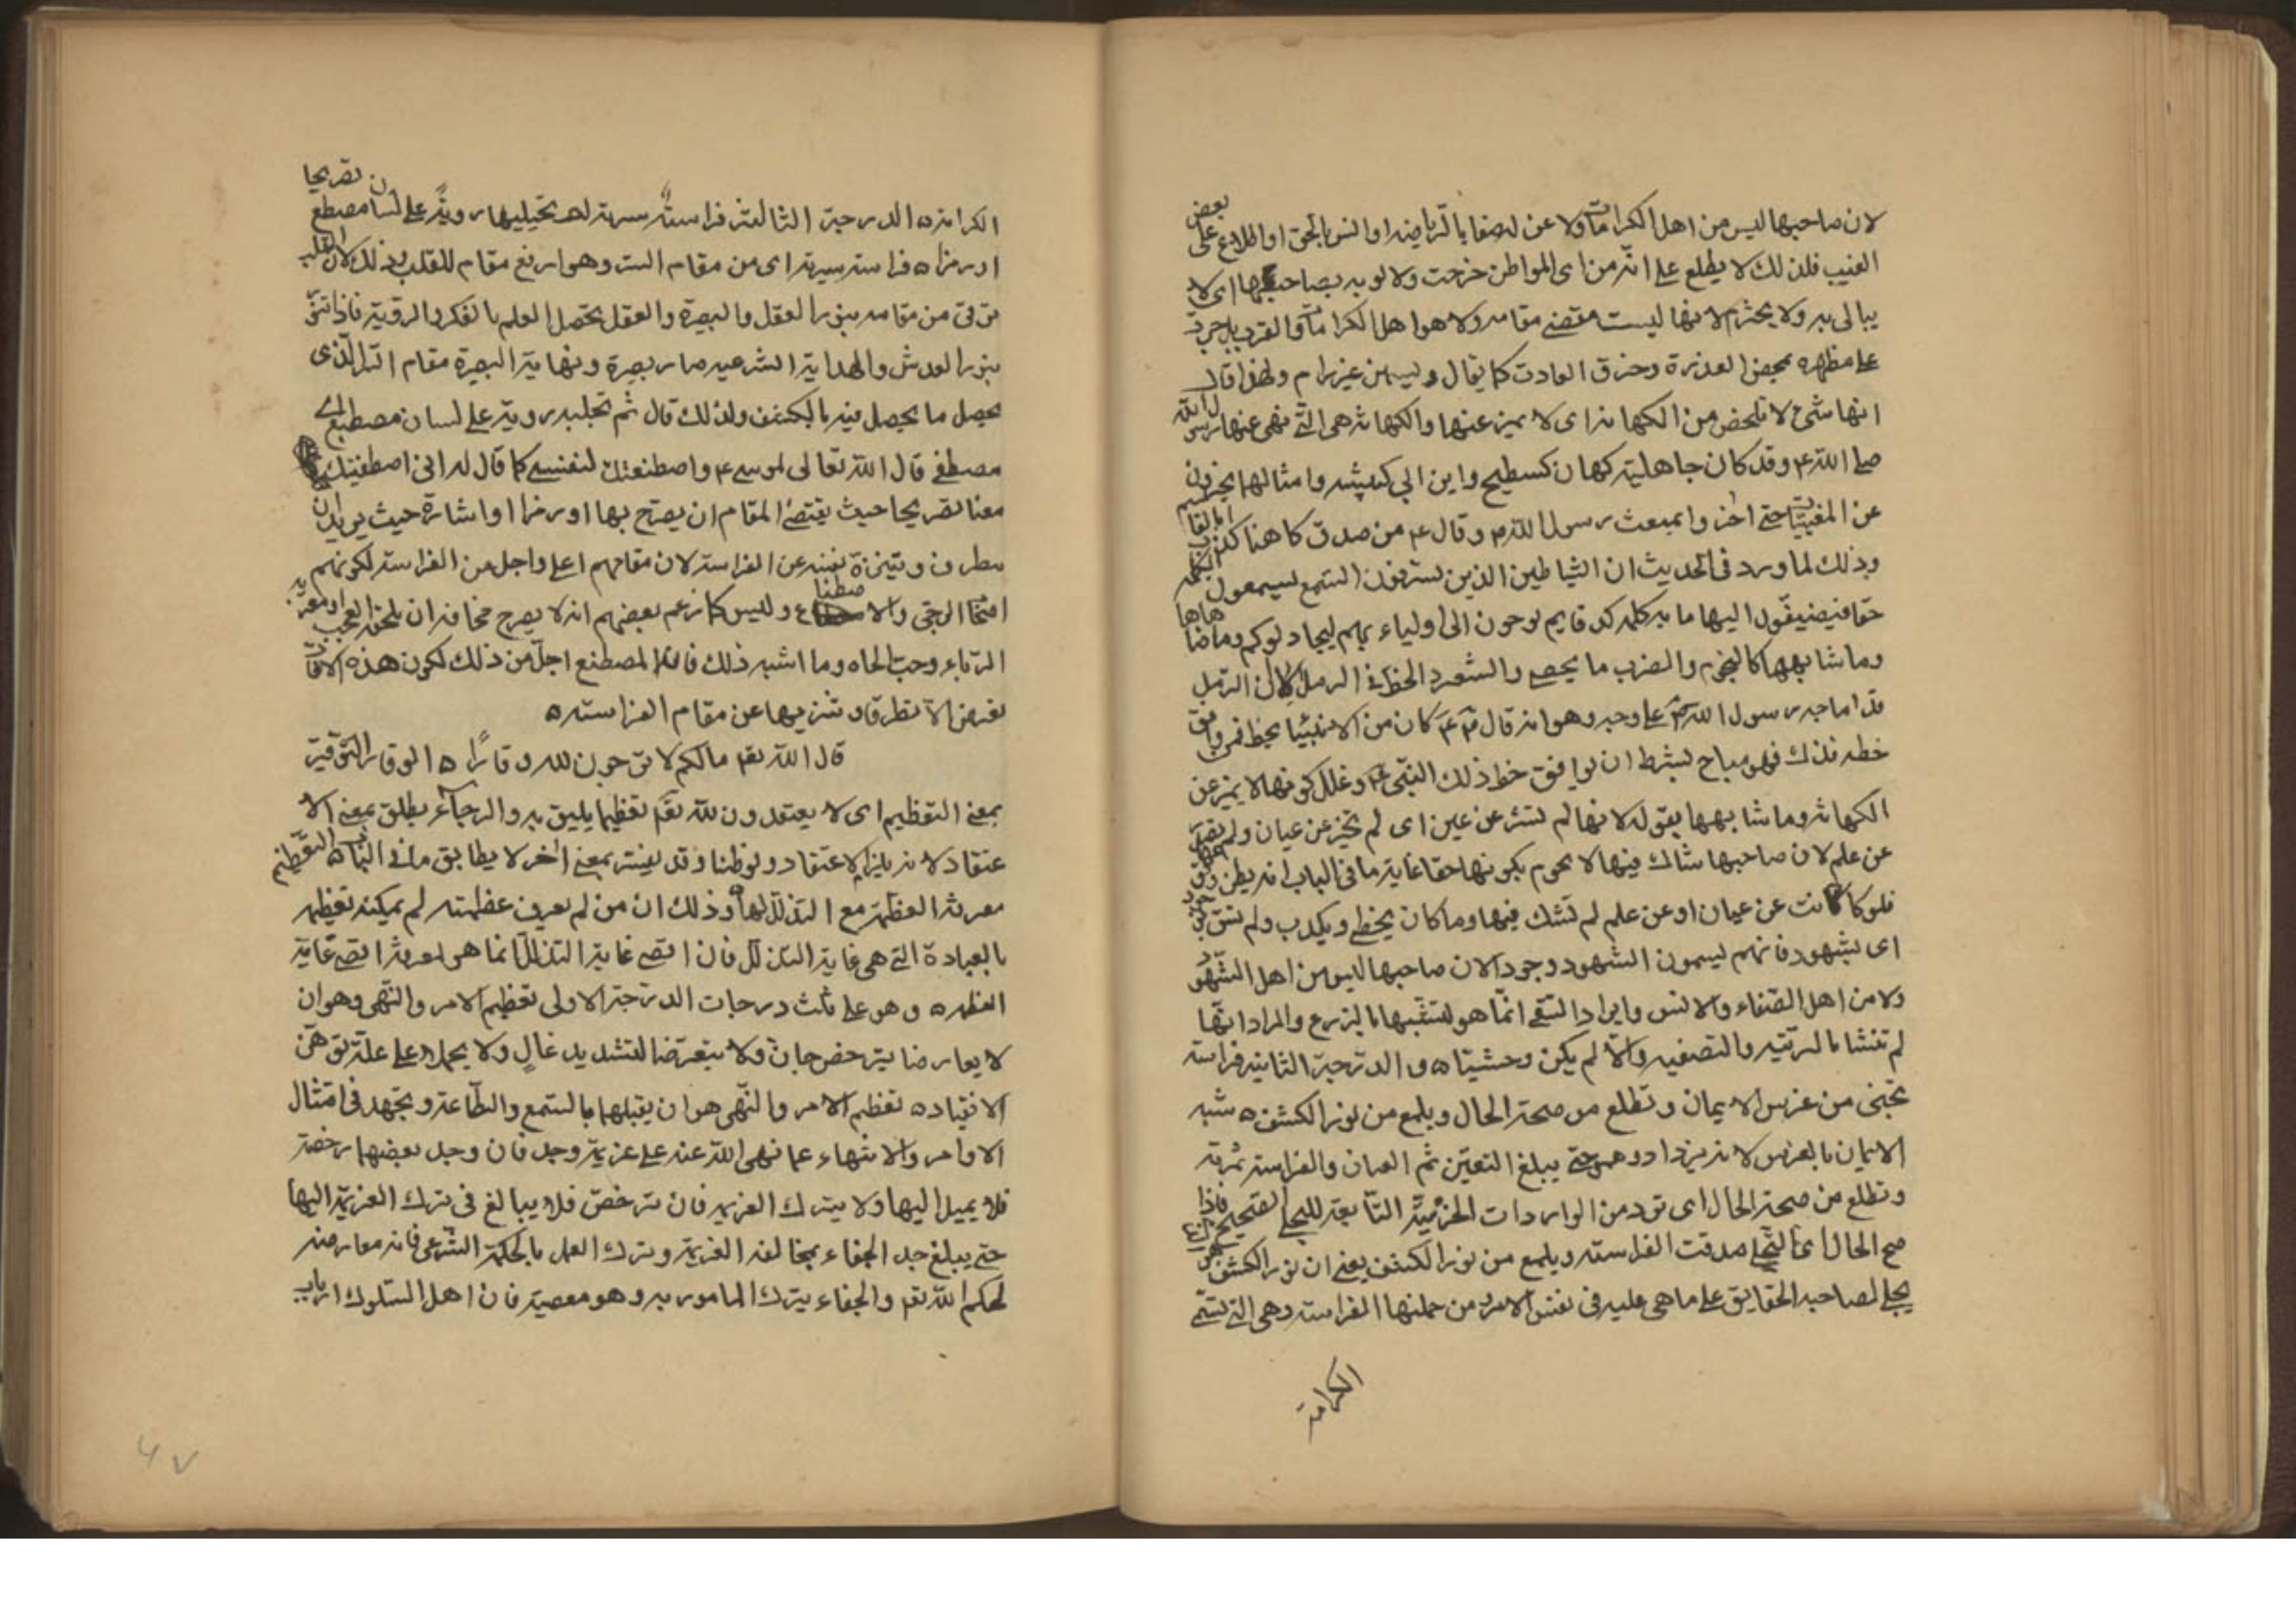 لان صاحبها ليس من اهل الكرامات ولا عن لصفا بالرياضه او الانس بالحق او اطلاع على بعض
الغيب فلذلك لا يطلع على انه من اى المواطن خرجت ولا يوبه بصاحبها اى لا
يبالى به ولا يحترم لانها ليست مقتضى مقامه ولا هو اهل الكرامات والقرب بل جرت
على مظهره بمحض القدرة وخرق العادت كما يقال وليس من غير رام ولهذا قال
انها شئ لا تلخص من الكهانه اى لا تميز عنها والكهانه هى التى نهى عنها رسول الله
صلى الله ع وقد كان جاهلية كهان كسطيح وابن ابى كبشه وامثالهما يخبرون
عن المغيبات حتى اخروا بمبعث رسول الله م وقال ع من صدق كاهنا كذب ابا القاسم
وذلك لما ورد فى الحديث ان الشياطين الذين يسترقون السمع ليسمعون الكلمه
حقا فيضيفون اليها ماية كلمه كذبا ثم يوحون الى اولياءهم ليجادلوكم وما ضاهاها
وما شابهها كالنجوم والضرب بالحصى والشعر والخط فى الرمل لان الرمل
قد اماجه رسول الله م على وجه وهو انه قال ع كان من الانبياء يخط فمن وافق
خطه فذاك فهو مباح بشرط ان يوافق خط ذلك النبى ع وعلل كونها لا تميز عن
الكهانه وما شابهها بقوله لانها لم تشر عن عين اى لم تخبر عن عيان ولم تصدر
عن علم لان صاحبها شاك فيها لا يحوم بكونها حقا غاية ما فى الباب انه يظن
فلو كانت عن عيان او عن علم لم تشك فيها وما كان يخطى ويكذب ولم تسق بوجود
اى بشهود فانهم يسمون الشهود وجودا لان صاحبها ليس من اهل الشهود
ولا من اهل الصفاء والانس وايراد السقى انما هو لتشبيهها بالزرع والمراد انها
لم تنشا بالتربيه والتصفيه والا لم يكن وحشيا ه والدرجة الثانيه فراسة
تجنى من غرس الايمان وتطلع من صحة الحال ويلمع من نور الكشف ه شبه
الايمان بالغرس لانه يزداد وينمو حتى يبلغ اليقين ثم العيان والفراسه ثمرته
وتطلع من صحة الحال اى ترد من الواردات الجزئية التابعة للتجلى الصحيح فاذا
صح الحال اى التجلى صدقت الفراسه ويلمع من نور الكشف يعنى ان نور الكشف هو الذى
يجلى لصاحبه الحقايق على ما هى عليه فى نفس الامر ومن جملتها الفراسه وهى التى تسمى
الكرامة
الكرامة ه الدرجة الثالثة فراسة سرية لم تجتلبها روية على لسان مصطنع تصريحا
او رمزا ه فراسة سرية اى من مقام السر وهو ارفع مقام للقلب وذلك لان القلب
ترقى من مقامه بنور العقل والبصيرة والعقل يحصل العلم بالفكر والروية فاذا تنور
بنور القدس والهداية الشرعيه صار بصيرة ونهاية البصيرة مقام السر الذى
يحصل ما يحصل فيه بالكشف ولذلك قال لم تجتلبه روية على لسان مصطنع اى
مصطفى قال الله تعالى لموسى ع واصطنعتك لنفسى كما قال له انى اصطفيتك
معنا تصريحا حيث يقتضى المقام ان يصرح بها او رمزا او اشارة حيث يريد ان
يطرف وينزه نفسه عن الفراسة لان مقامهم اعلى واجل من الفراسة لكونهم
امناء الوحى والاصطناع وليس كما زعم بعضهم انه لا يصرح مخافة ان يلحقه العجب او
الرياء وحب الجاه وما اشبه ذلك فان المصطنع اجل من ذلك لكون هذه الافات
تعرض الا تطرقا وتنزيها عن مقام الفراسة ه
قال الله تعم مالكم لا ترجون لله وقارًا ه الوقار التوقير
بمعنى التعظيم اى لا يعتقدون لله تعم تعظيما يليق به والرجاء يطلق بمعنى الا
عتقاد لانه يلزم الاعتقاد وقد يفسر بمعنى اخر لا يطابق ما فى الباب ه التعظيم
معرفة العظمة مع التذلل لها ه وذلك ان من لم يعرف عظمته لم يمكنه تعظيمه
بالعبادة التى هى غاية التذلل فان اقصى غاية التذلل انما هو لمعرفة اقصى غاية
العظمه ه وهو على ثلث درجات الدرجة الاولى تعظيم الامر والنهى وهو ان
لا يعارضا بترخص جاف ولا يتعرضا لتشديد غالٍ ولا يحملا على علة توهن
الانقياد ه تعظيم الامر والنهى هو ان يقبلهما بالسمع والطاعة ويجهد فى امتثال
الاوامر والانتهاء عما نهى الله عنه على عزيمة وجد فان وجد بعضهما رخصة
فلا يميل اليها ولا يترك العزيمه فان ترخص فلا يبالغ فى ترك العزيمة اليها
حتى يبلغ حد الجفاء بمخالفة العزيمة وترك العمل بالحكمة الشرعى فانه معارضه
لحكم الله تعم والجفاء بترك المامور به وهو معصية فان اهل السلوك ارباب
٤٧